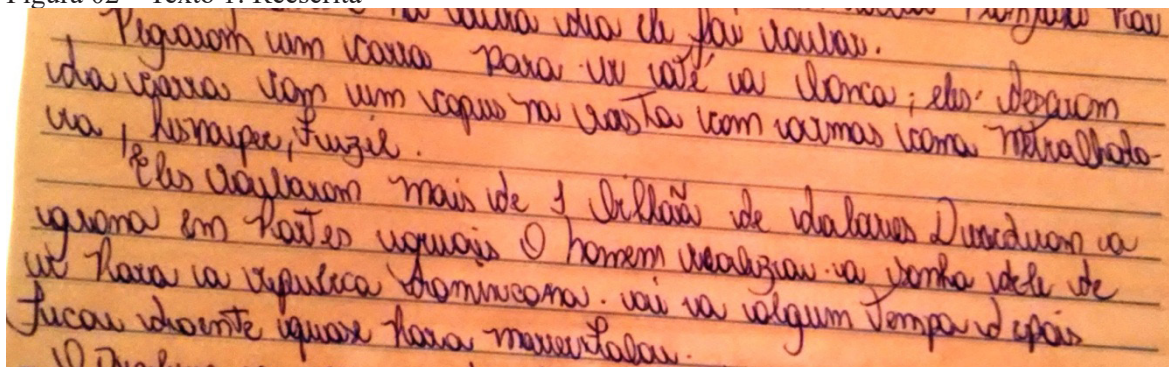 Figura 02 – Texto 1: Reescrita
na outra dia ele foi roubar.
Pegarom um carro para ir até o banco; eles desarom
do carro com um capus no rosto com armas como metralhado-
ra, fusil.
Eles roubarom mais de 1 bilhão de dolares Duvidirom a
grana em partes iguais O homem realizou o sonho dele de
ir para a republica Dominicana. ai o algum Tempo depois
ficou doente quase para morrer